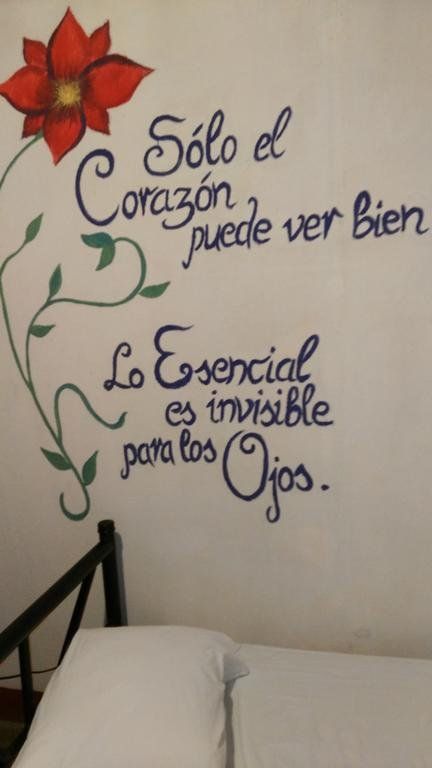 Sólo el
Corazón
puede ver bien
Lo Esencial
es invisible
para los
Ojos.